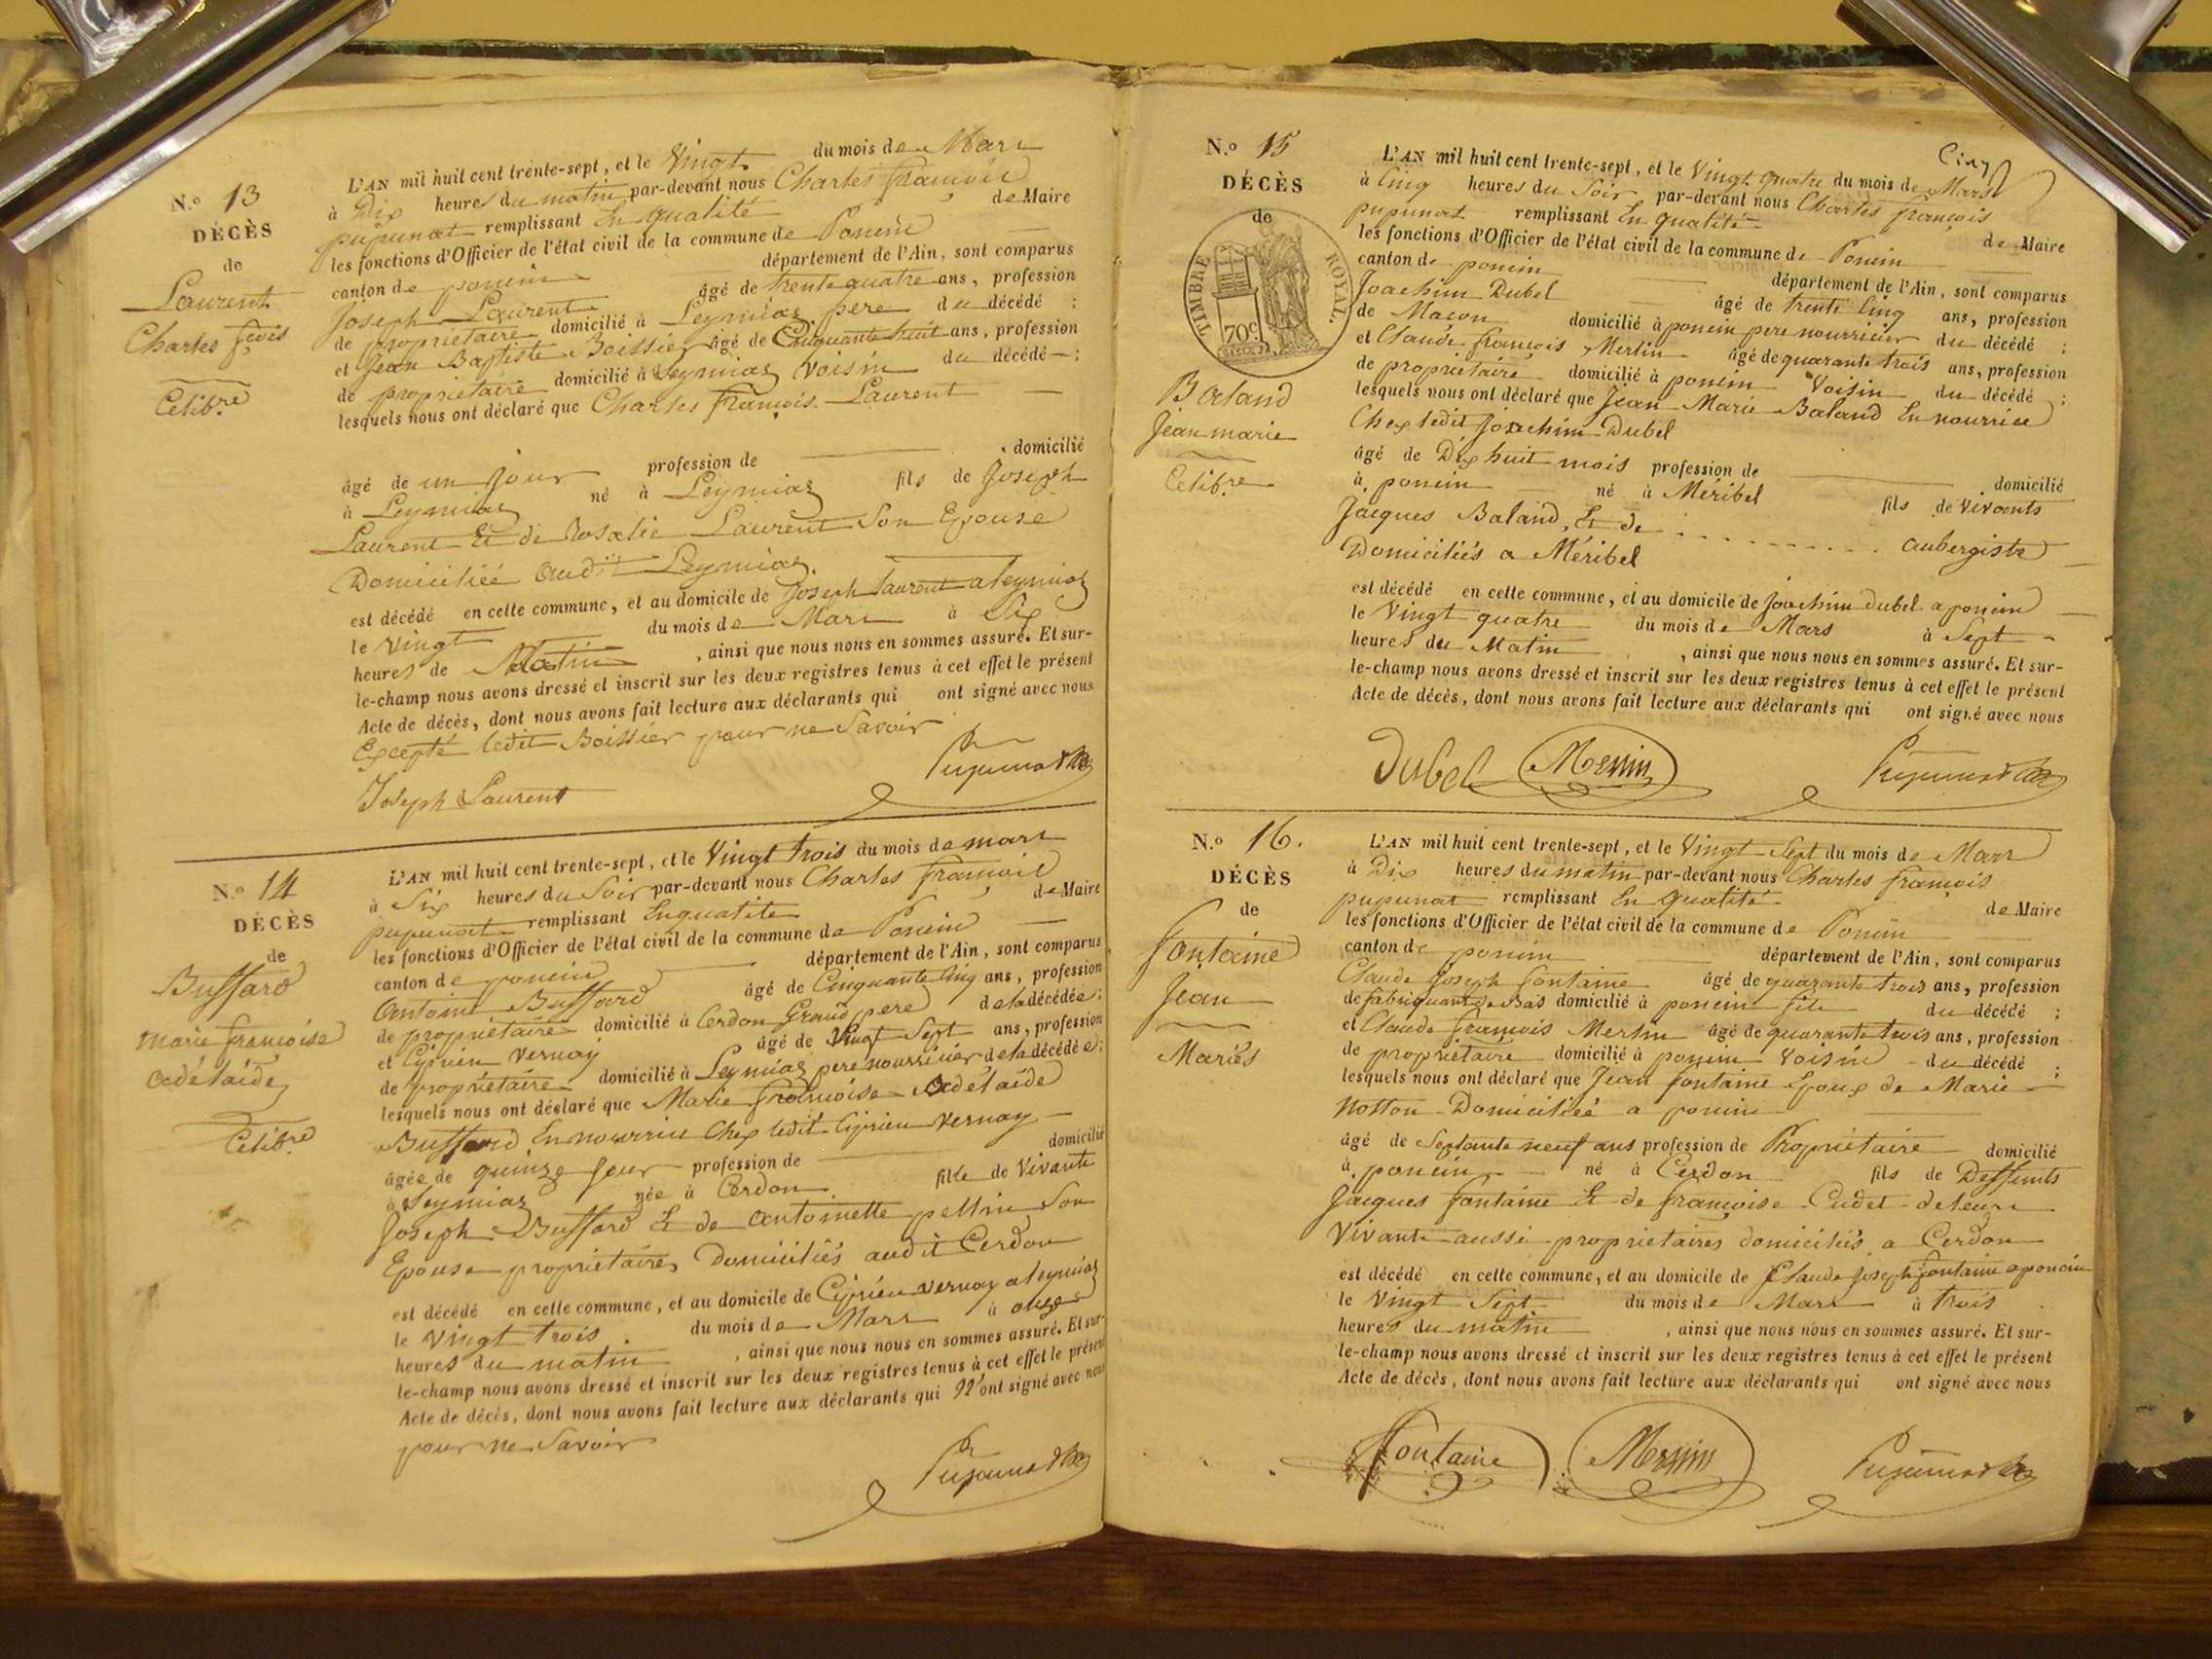 N.o 13
DÉCÈS
de
Laurent
Charles fçois
Célibre
L'AN mil huit cent trente-sept, et le Vingt du mois de Mars
à Dix heures du matin par-devant nous Charles françois
pupunat remplissant En qualité de Maire
les fonctions d'Officier de l'état civil de la commune de Poncin
canton de poncin département de l'Ain, sont comparus
Joseph Laurent âgé de trente quatre ans, profession
de propriétaire domicilié à Leymiaz pere du décédé ;
et Jean Baptiste Boissier âgé de Cinquante huit ans, profession
de propriétaire domicilié à Leymiaz Voisin du décédé ;
lesquels nous ont déclaré que Charles françois Laurent
âgé de un jour profession de domicilié
à Leymiaz né à Leymiaz fils de Joseph
Laurent Et de Rosalie Laurent Son Epouse
Domiciliée audit Leymiaz
est décédé en cette commune, et au domicile de Joseph Laurent a leymiaz
le Vingt du mois de Mars à Six
heures de Matin, ainsi que nous nous en sommes assuré. Et sur-
le-champ nous avons dressé et inscrit sur les deux registres tenus à cet effet le présent
Acte de décès, dont nous avons fait lecture aux déclarants qui ont signé avec nous
Excepté ledit Boissier pour ne Savoir
Joseph Laurent Pupunat
N.o 14
DÉCÈS
de
Buffard
marie françoise
adélaïde
Célib.re
L'AN mil huit cent trente-sept, et le Vingt trois du mois de mars
à Six heures du Soir par-devant nous Charles françois
pupunat remplissant En qualité de Maire
les fonctions d'Officier de l'état civil de la commune de Poncin
canton de poncin département de l'Ain, sont comparus
Antoine Buffard âgé de Cinquante Cinq ans, profession
de propriétaire domicilié à Cerdon Grand pere de la décédée ;
et Ciprien Vernay âgé de Vingt Sept ans, profession
de propriétaire domicilié à Leymiaz pere nourricier de la décédée ;
lesquels nous ont déclaré que Marie françoise Adélaïde
Buffard En nourrice Chez ledit Ciprien Vernay
âgée de quinze Jour profession de domicilié
à Leymiaz née à Cerdon fille de Vivants
Joseph Buffard Et de antoinette pellin Son
Epouse propriétaires Domiciliés audit Cerdon
est décédé en cette commune, et au domicile de Ciprien Vernay a leymiaz
le Vingt trois du mois de Mars à onze
heures du matin, ainsi que nous nous en sommes assuré. Et sur-
le-champ nous avons dressé et inscrit sur les deux registres tenus à cet effet le présent
Acte de décès, dont nous avons fait lecture aux déclarants qui N'ont signé avec nous
pour ne Savoir
Pupunat
Cinq
N.o 15
DÉCÈS
de
TIMBRE ROYAL.
70c.
Baland
Jean marie
Célib.re
L'AN mil huit cent trente-sept, et le Vingt quatre du mois de Mars
à Cinq heures du Soir par-devant nous Charles françois
pupunat remplissant En qualité de Maire
les fonctions d'Officier de l'état civil de la commune de Poncin
canton de poncin département de l'Ain, sont comparus
Joachim Dubel âgé de trente Cinq ans, profession
de Macon domicilié à poncin pere nourricier du décédé ;
et Claude françois Merlin âgé de quarante trois ans, profession
de propriétaire domicilié à poncin Voisin du décédé ;
lesquels nous ont déclaré que Jean Marie Baland En nourrice
Chez ledit Joachim Dubel
âgé de Dix huit mois profession de domicilié
à poncin né à Méribel fils de Vivants
Jacques Baland, Et de .......... aubergiste
Domiciliés a Méribel
est décédé en cette commune, et au domicile de Joachim Dubel a poncin
le Vingt quatre du mois de Mars à Sept
heures du Matin, ainsi que nous nous en sommes assuré. Et sur-
le-champ nous avons dressé et inscrit sur les deux registres tenus à cet effet le présent
Acte de décès, dont nous avons fait lecture aux déclarants qui ont signé avec nous
Dubel Merlin Pupunat
N.o 16.
DÉCÈS
de
fontaine
Jean
Mariés
L'AN mil huit cent trente-sept, et le Vingt Sept du mois de Mars
à Dix heures du matin par-devant nous Charles françois
pupunat remplissant En qualité de Maire
les fonctions d'Officier de l'état civil de la commune de Poncin
canton de poncin département de l'Ain, sont comparus
Claude Joseph fontaine âgé de quarante trois ans, profession
de fabriquant de Bas domicilié à poncin fils du décédé ;
et Claude françois Merlin âgé de quarante trois ans, profession
de propriétaire domicilié à poncin Voisin du décédé ;
lesquels nous ont déclaré que Jean fontaine Epoux de Marie
Notton Domiciliée a poncin
âgé de Septante neuf ans profession de Propriétaire domicilié
à poncin né à Cerdon fils de Deffunts
Jacques fontaine Et de françoise Cudet de leurs
Vivants aussi propriétaires domiciliés a Cerdon
est décédé en cette commune, et au domicile de Claude Joseph fontaine a poncin
le Vingt Sept du mois de Mars à trois
heures du matin, ainsi que nous nous en sommes assuré. Et sur-
le-champ nous avons dressé et inscrit sur les deux registres tenus à cet effet le présent
Acte de décès, dont nous avons fait lecture aux déclarants qui ont signé avec nous
fontaine Merlin Pupunat